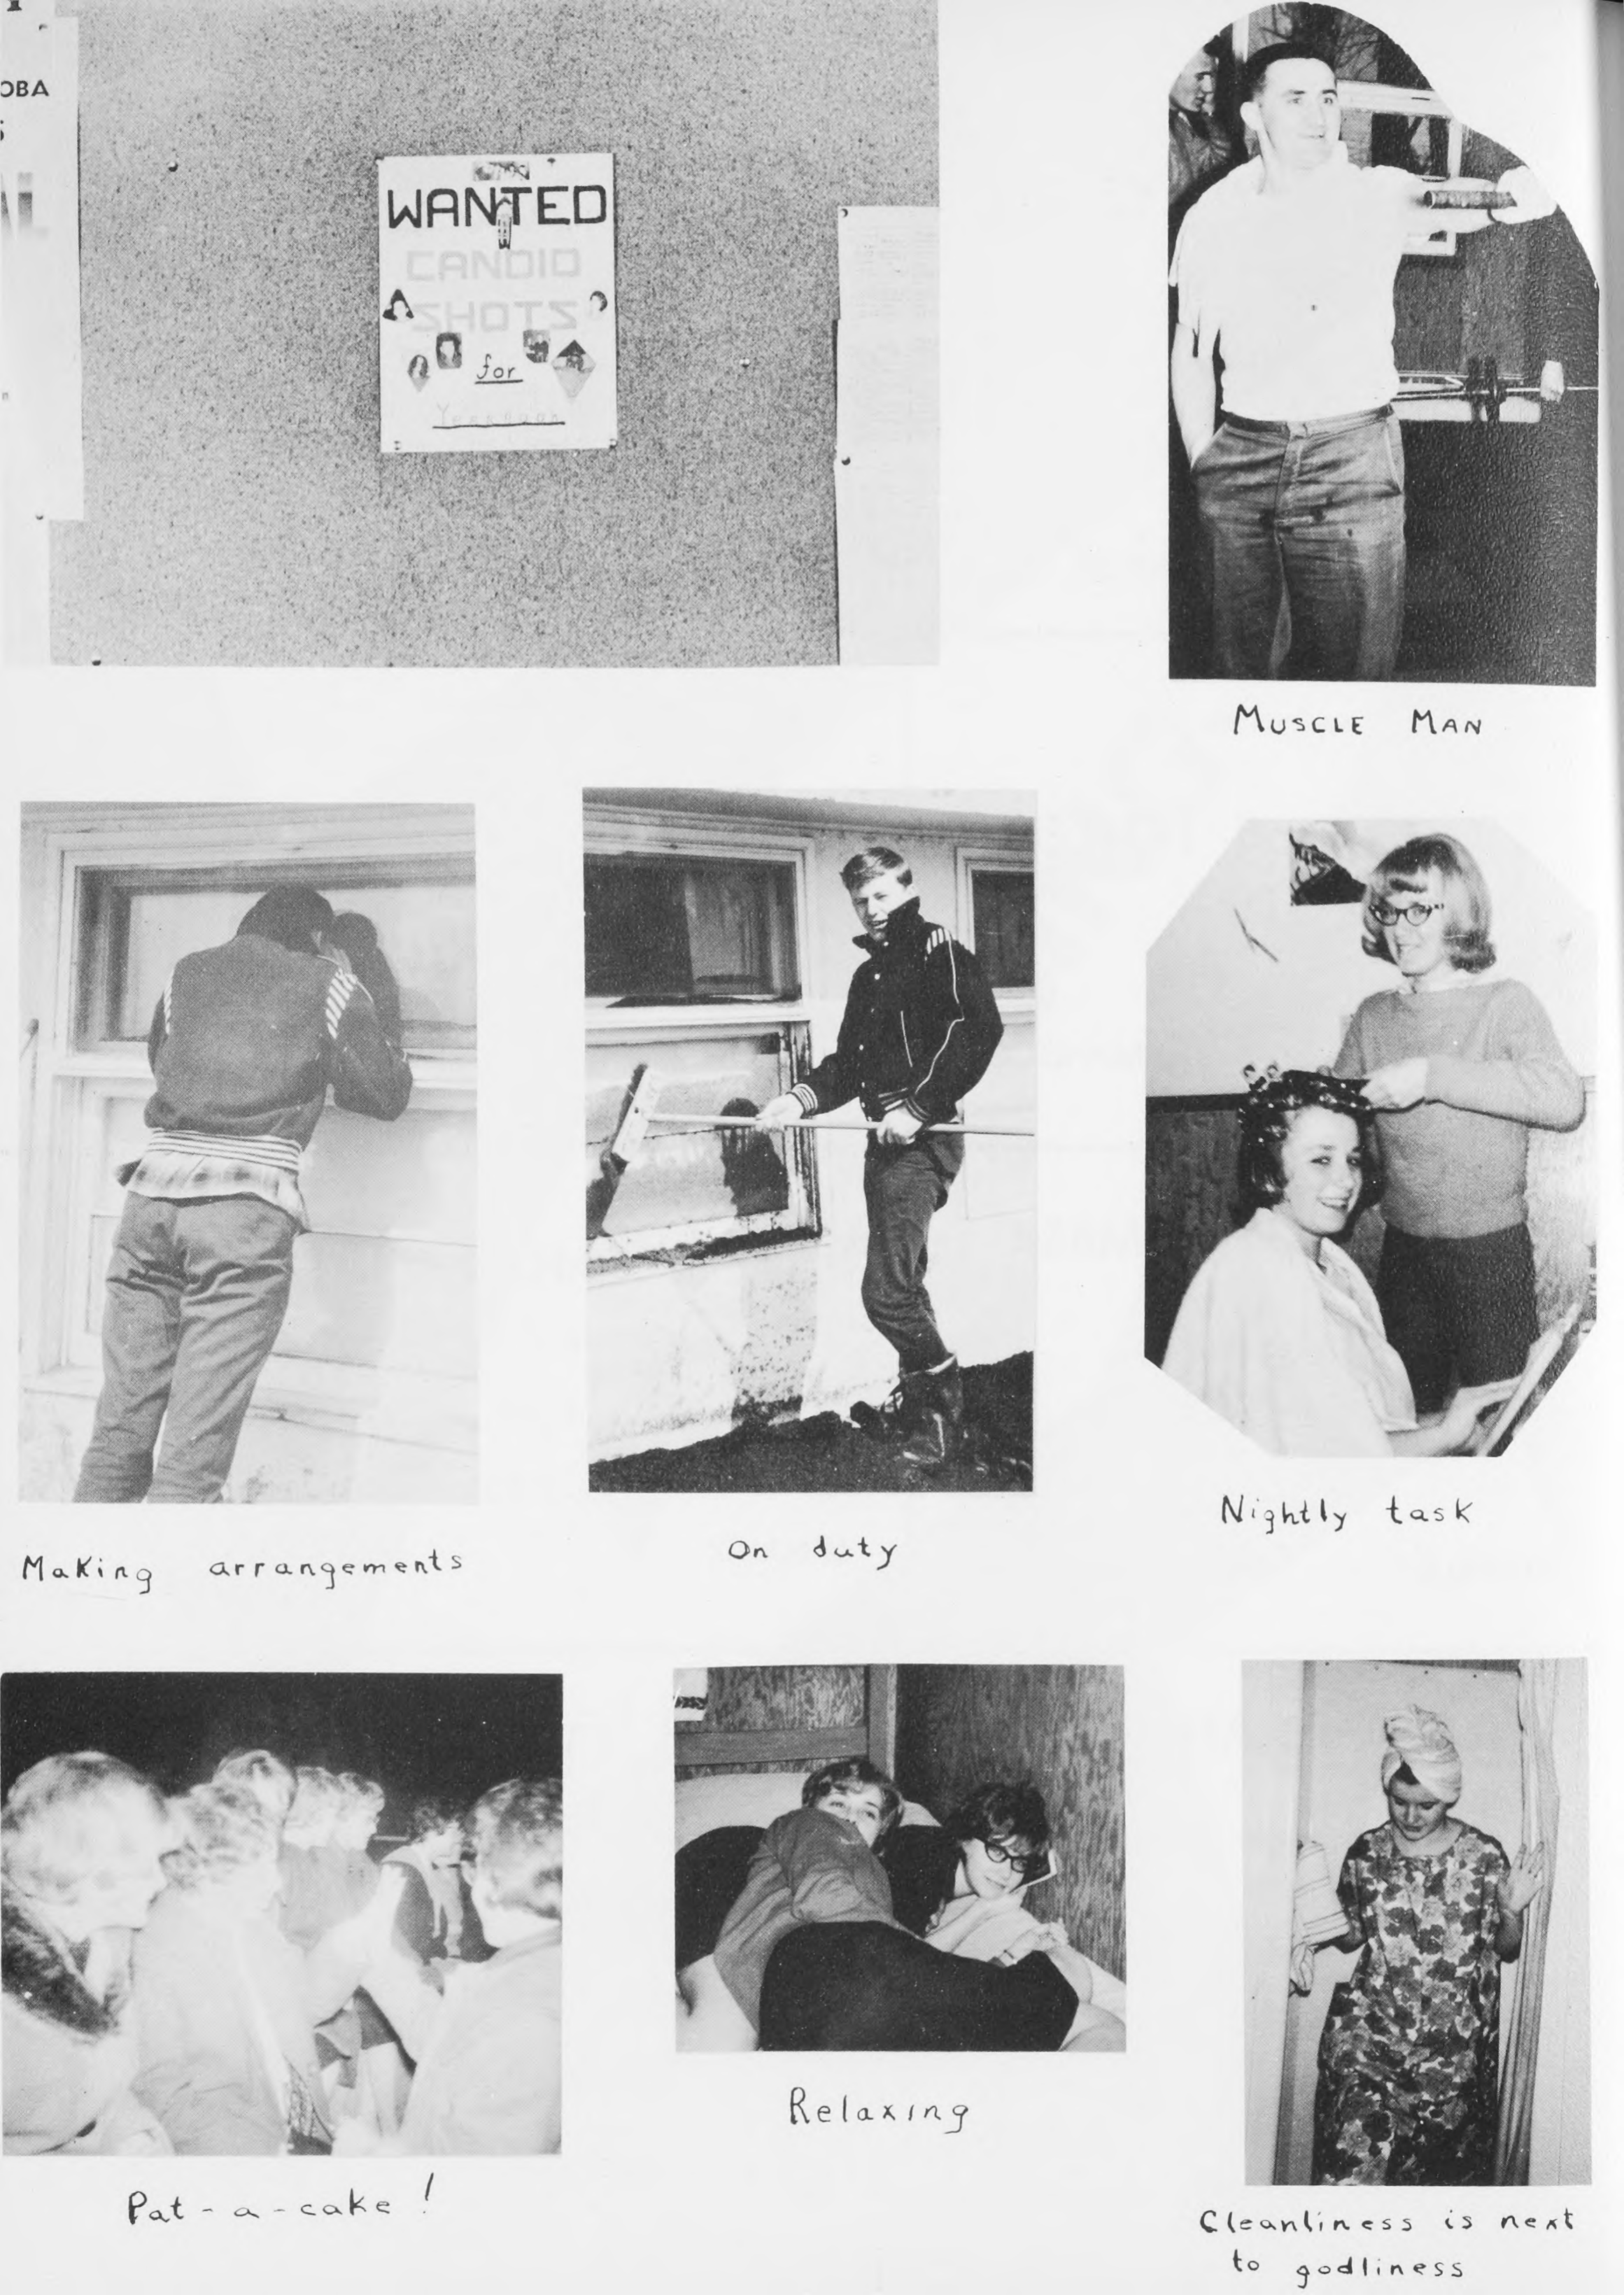 OBA
WANTED
CANDID
SHOTS
for
MUSCLE MAN
Making arrangements
On duty
Nightly task
Pat-a-cake!
Relaxing
Cleanliness is next
to godliness